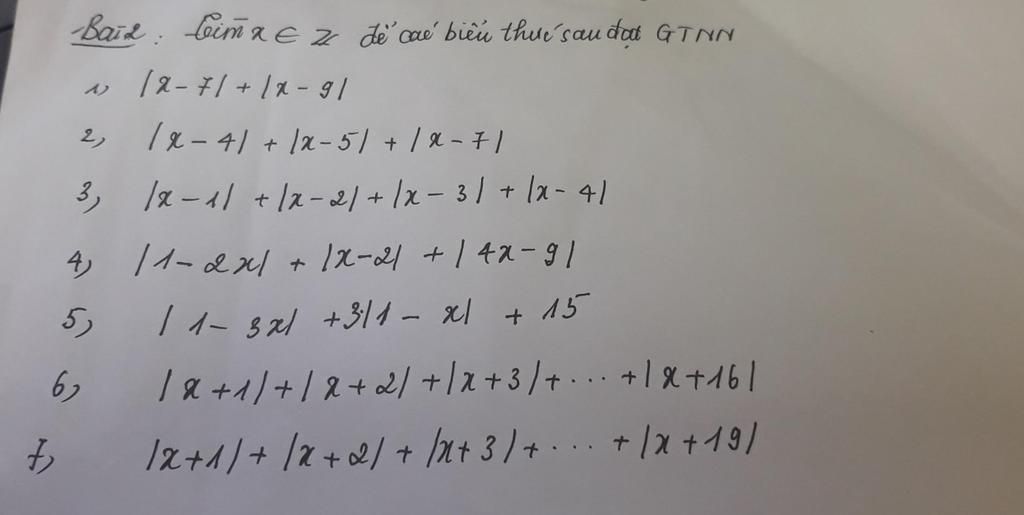 Bài 2: Tìm x ∈ Z để các biểu thức sau đạt GTNN
1) |x - 7| + |x - 9|
2) |x - 4| + |x - 5| + |x - 7|
3) |x - 1| + |x - 2| + |x - 3| + |x - 4|
4) |1 - 2x| + |x - 2| + |4x - 9|
5) |1 - 3x| + 3|1 - x| + 15
6) |x + 1| + |x + 2| + |x + 3| + ... + |x + 16|
7) |x + 1| + |x + 2| + |x + 3| + ... + |x + 19|